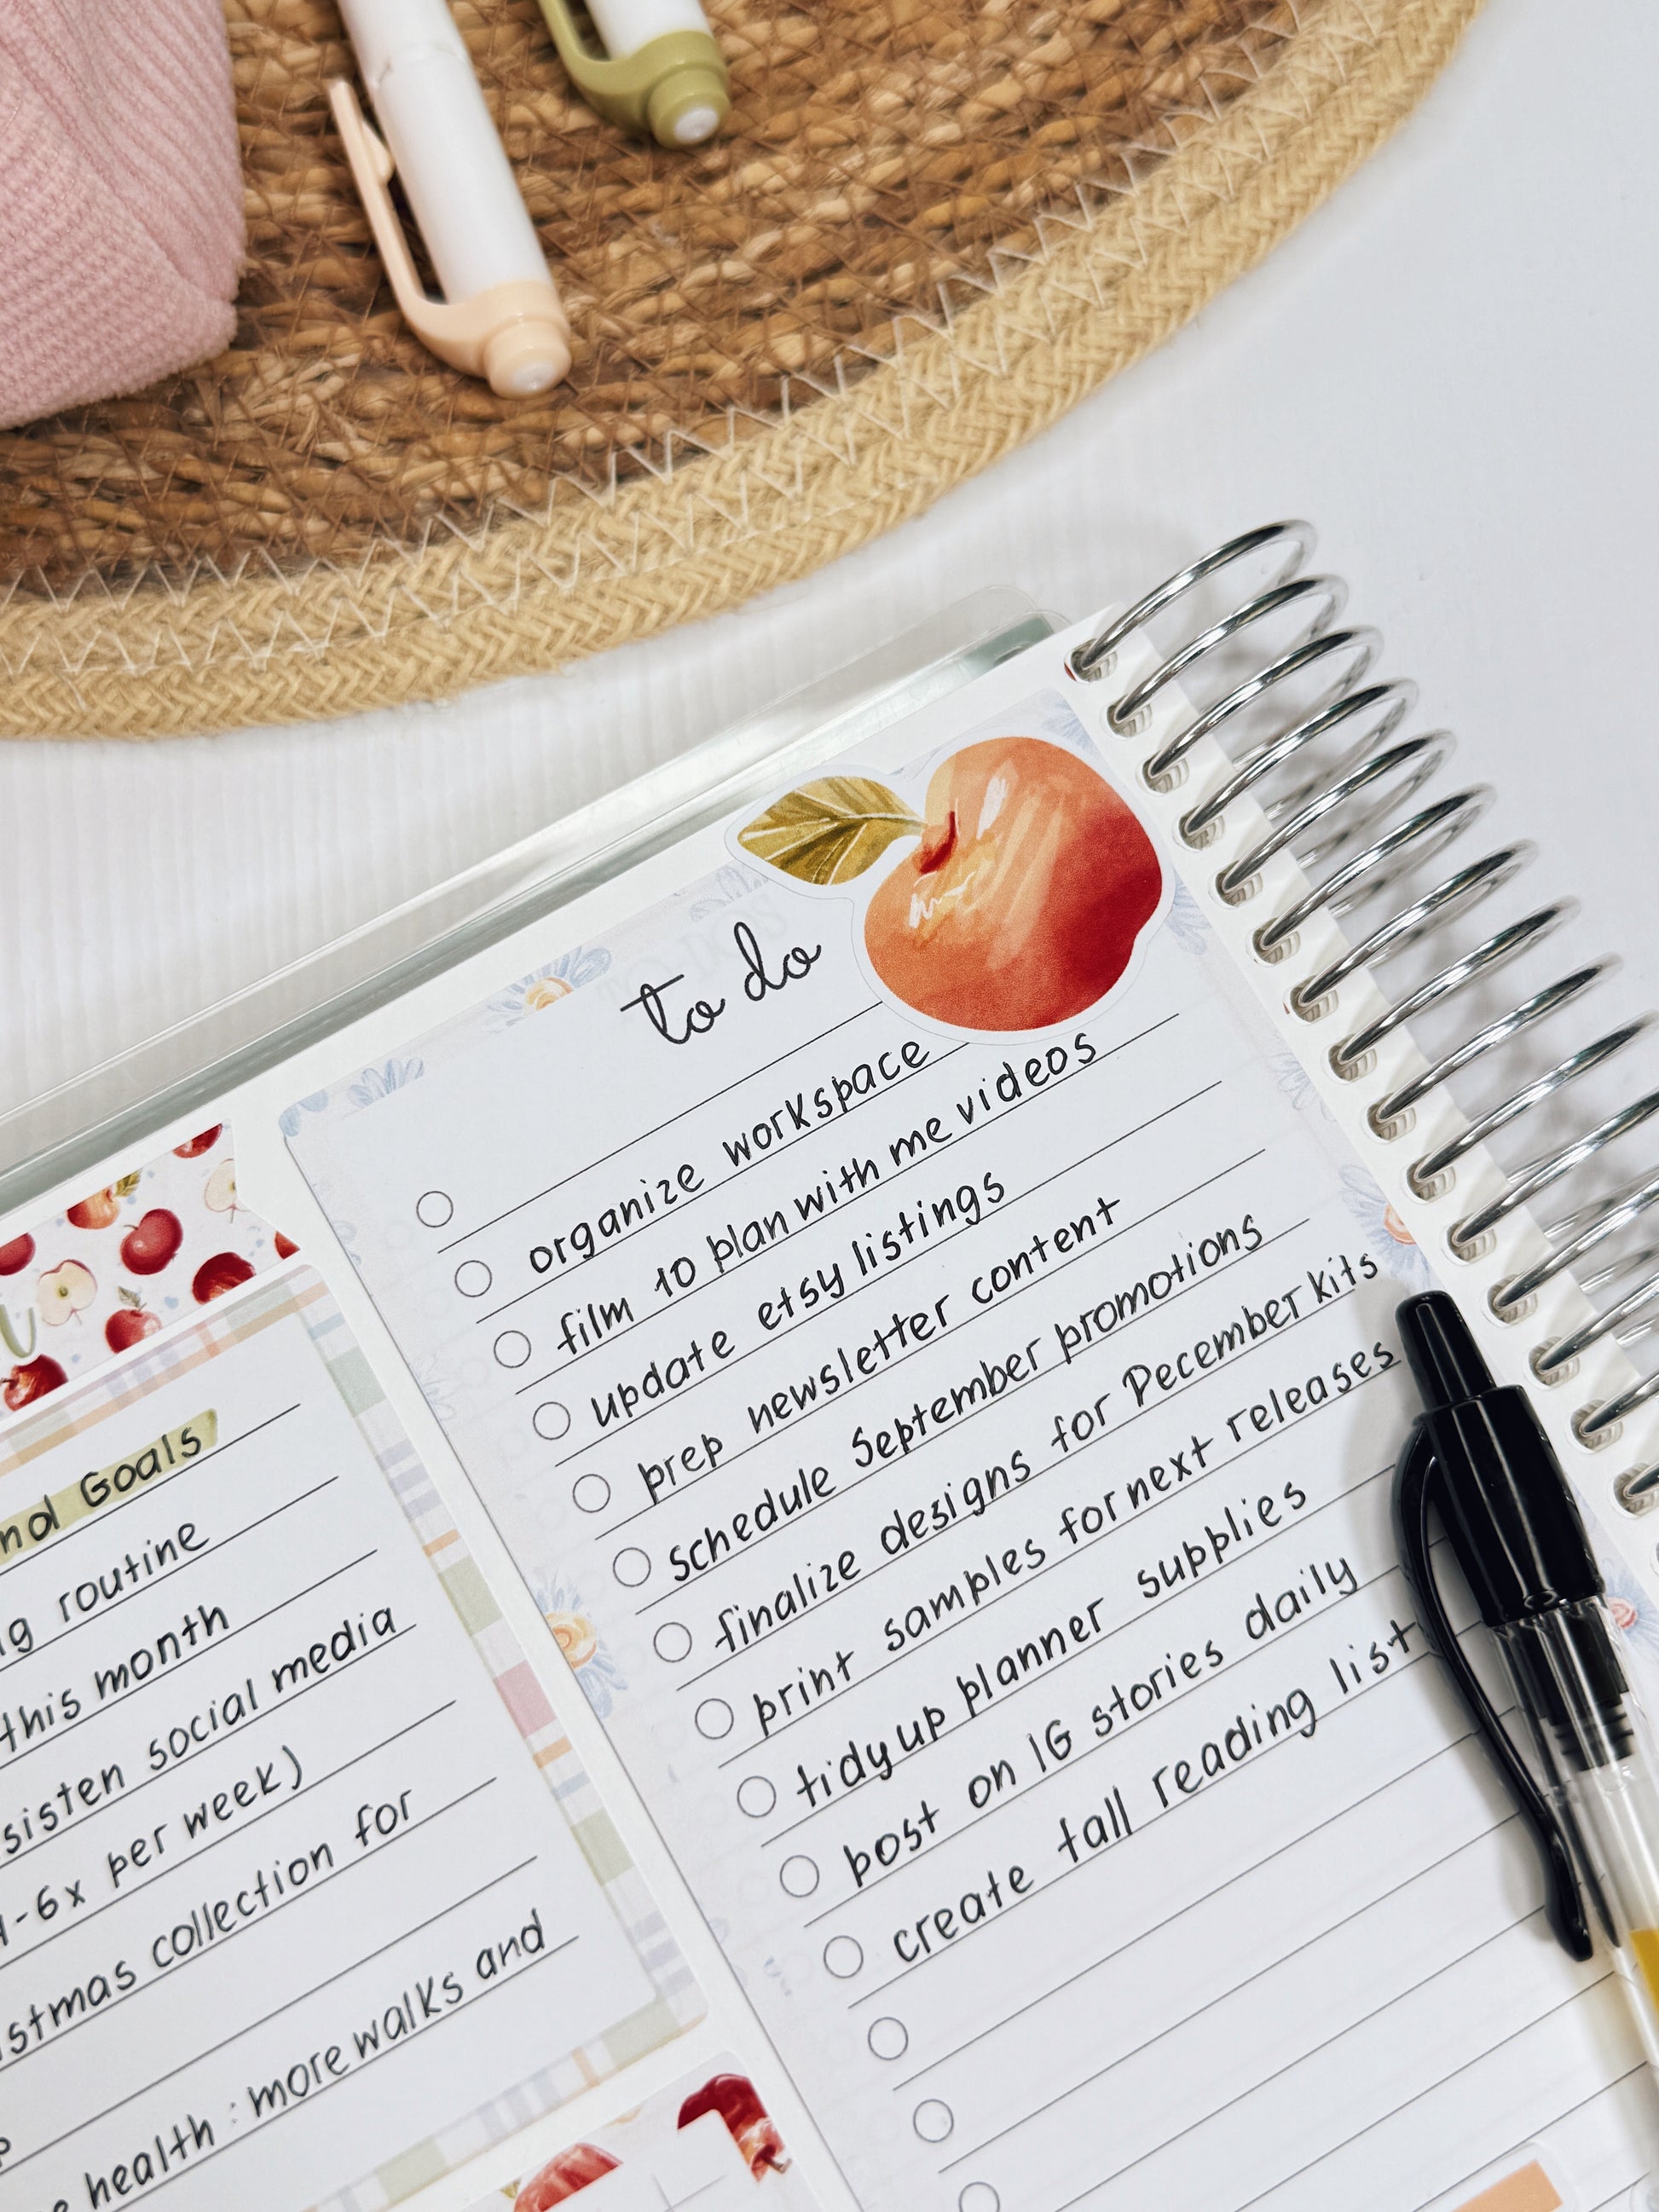 to do
organize workspace
film 10 plan with me videos
update etsy listings
prep newsletter content
schedule September promotions
finalize designs for December kits
print samples for next releases
tidy up planner supplies
post on IG stories daily
create fall reading list
Goals
routine
this month
social media
-6x per week)
collection for
health: more walks and